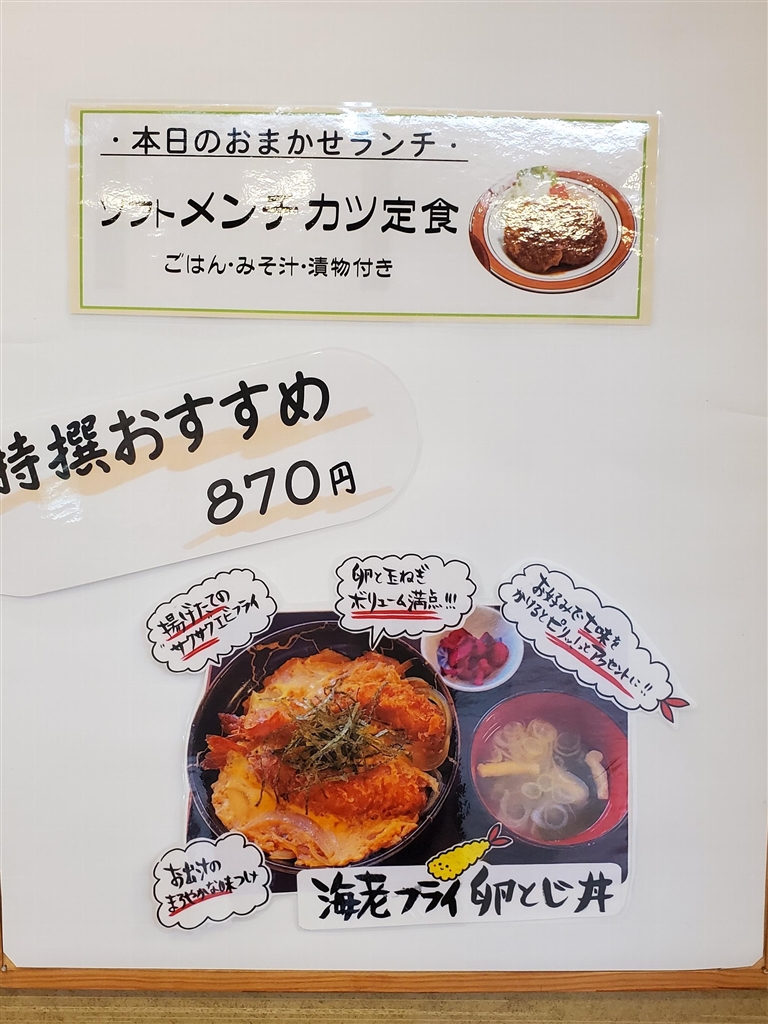 ・本日のおまかせランチ・
ソフトメンチカツ定食
ごはん・みそ汁・漬物付き
特撰おすすめ
870円
揚げたての
サクサクエビフライ
卵と玉ねぎ
ボリューム満点!!!
お好みで七味を
かけるとピリッ!っとアクセントに!!
お出汁の
まろやかな味つけ
海老フライ卵とじ丼